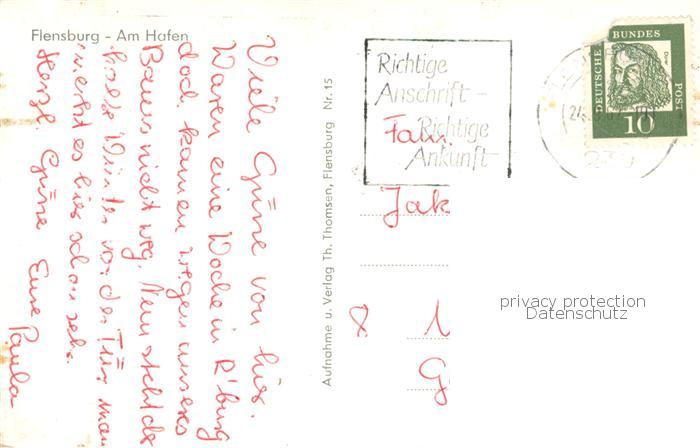 Flensburg - Am Hafen
Viele Grüsse von hier.
Waren eine Woche in R'burg
doch kamen wegen unseres
Baues nicht weg. Nun steht der
Winter vor der Tür, man
merkt es hier schon sehr.
Herzl. Grüsse Eure Paula
Aufnahme u. Verlag Th. Thomsen, Flensburg Nr. 15
Richtige
Anschrift -
Richtige
Ankunft
Fam.
Jak
& 1
G
DEUTSCHE BUNDES POST
Dürer
10
privacy protection
Datenschutz